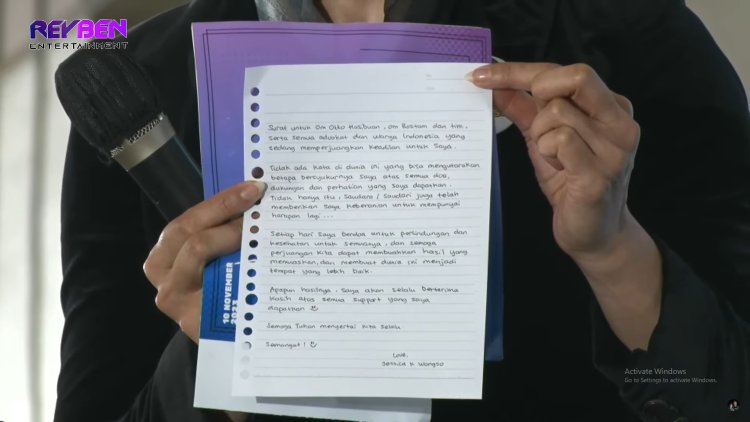 REYBEN
ENTERTAINMENT
Surat untuk Om Otto Hasibuan, om Bostam dan tim,
serta semua advokat dan warga Indonesia yang
sedang memperjuangkan keadilan untuk saya.
Tidak ada kata di dunia ini yang bisa mengutarakan
betapa bersyukurnya saya atas semua doa,
dukungan dan perhatian yang saya dapatkan.
Tidak hanya itu, saudara / saudari juga telah
memberikan saya keberanian untuk mempunyai
harapan lagi ...
Setiap hari saya berdoa untuk perlindungan dan
kesehatan untuk semuanya, dan semoga
perjuangan kita dapat membuahkan hasil yang
memuaskan, dan membuat dunia ini menjadi
tempat yang lebih baik.
Apapun hasilnya, saya akan selalu berterima
kasih atas semua support yang saya
dapatkan ☺
Semoga Tuhan menyertai kita selalu
Semangat! ☺
Love,
Jessica K Wongso
10 NOVEMBER
2023
Activate Windows
Go to Settings to activate Windows.